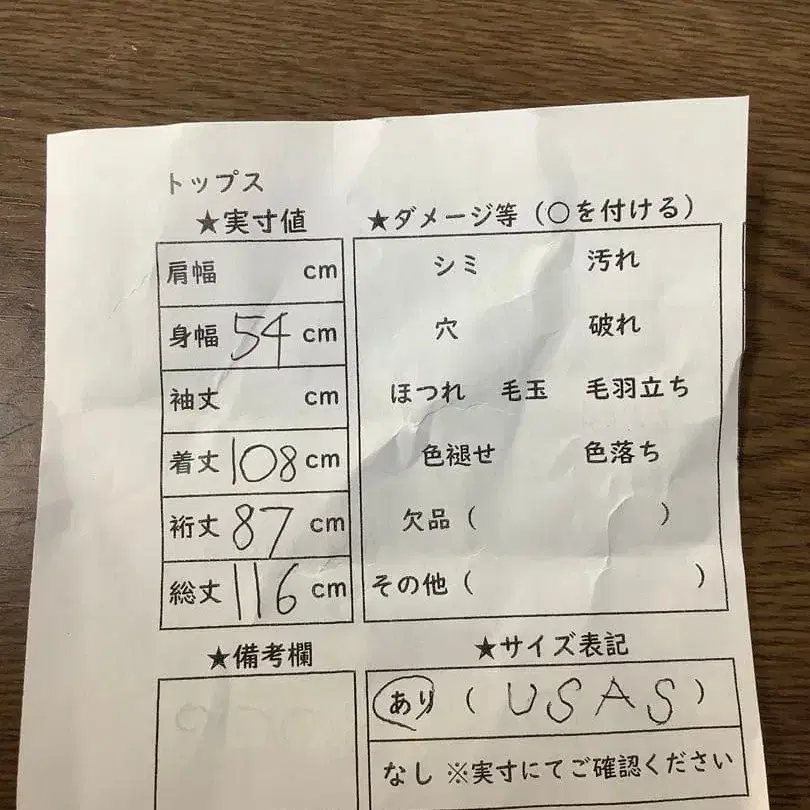 トップス
★実寸値
肩幅 cm
身幅 54 cm
袖丈 cm
着丈 108 cm
裄丈 87 cm
総丈 116 cm
★ダメージ等（○を付ける）
シミ 汚れ
穴 破れ
ほつれ 毛玉 毛羽立ち
色褪せ 色落ち
欠品（ ）
その他（ ）
★備考欄
★サイズ表記
あり（USAS）
なし ※実寸にてご確認ください